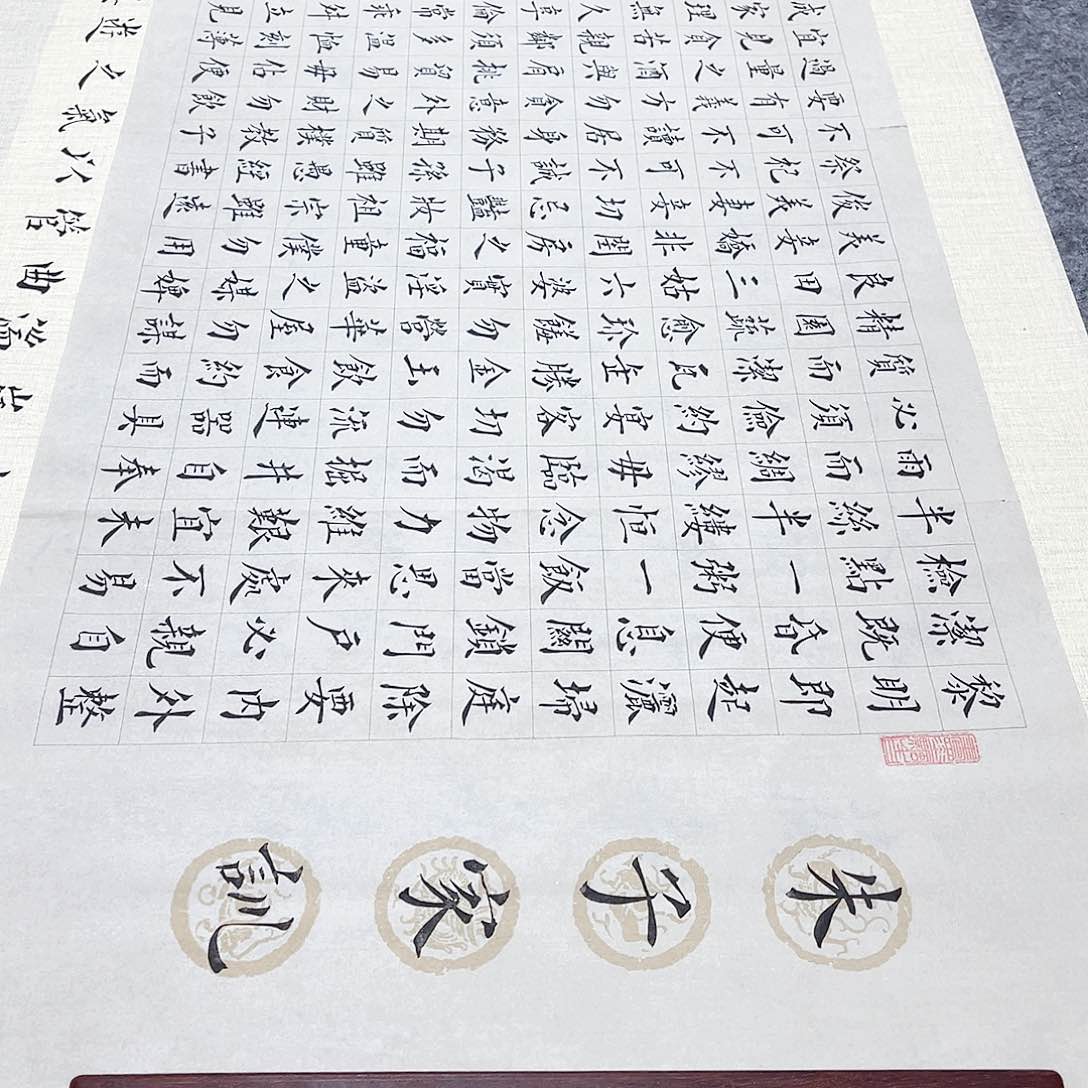 朱子家訓
黎明即起灑掃庭除要內外整
潔既昏便息關鎖門戶必親自
檢點一粥一飯當思來處不易
半絲半縷恒念物力維艱宜未
雨而綢繆毋臨渴而掘井自奉
必須儉約宴客切勿流連器具
質而潔瓦缶勝金玉飲食約而
精園蔬愈珍饈勿營華屋勿謀
良田三姑六婆實淫盜之媒婢
美妾嬌非閨房之福童僕勿用
俊美妻妾切忌豔妝祖宗雖遠
祭祀不可不誠子孫雖愚經書
不可不讀居身務期質樸教子
要有義方勿貪意外之財勿飲
過量之酒與肩挑貿易毋佔便
宜見貧苦親鄰須多溫恤刻薄
成家理無久享倫常乖舛立見
之氣以管曲